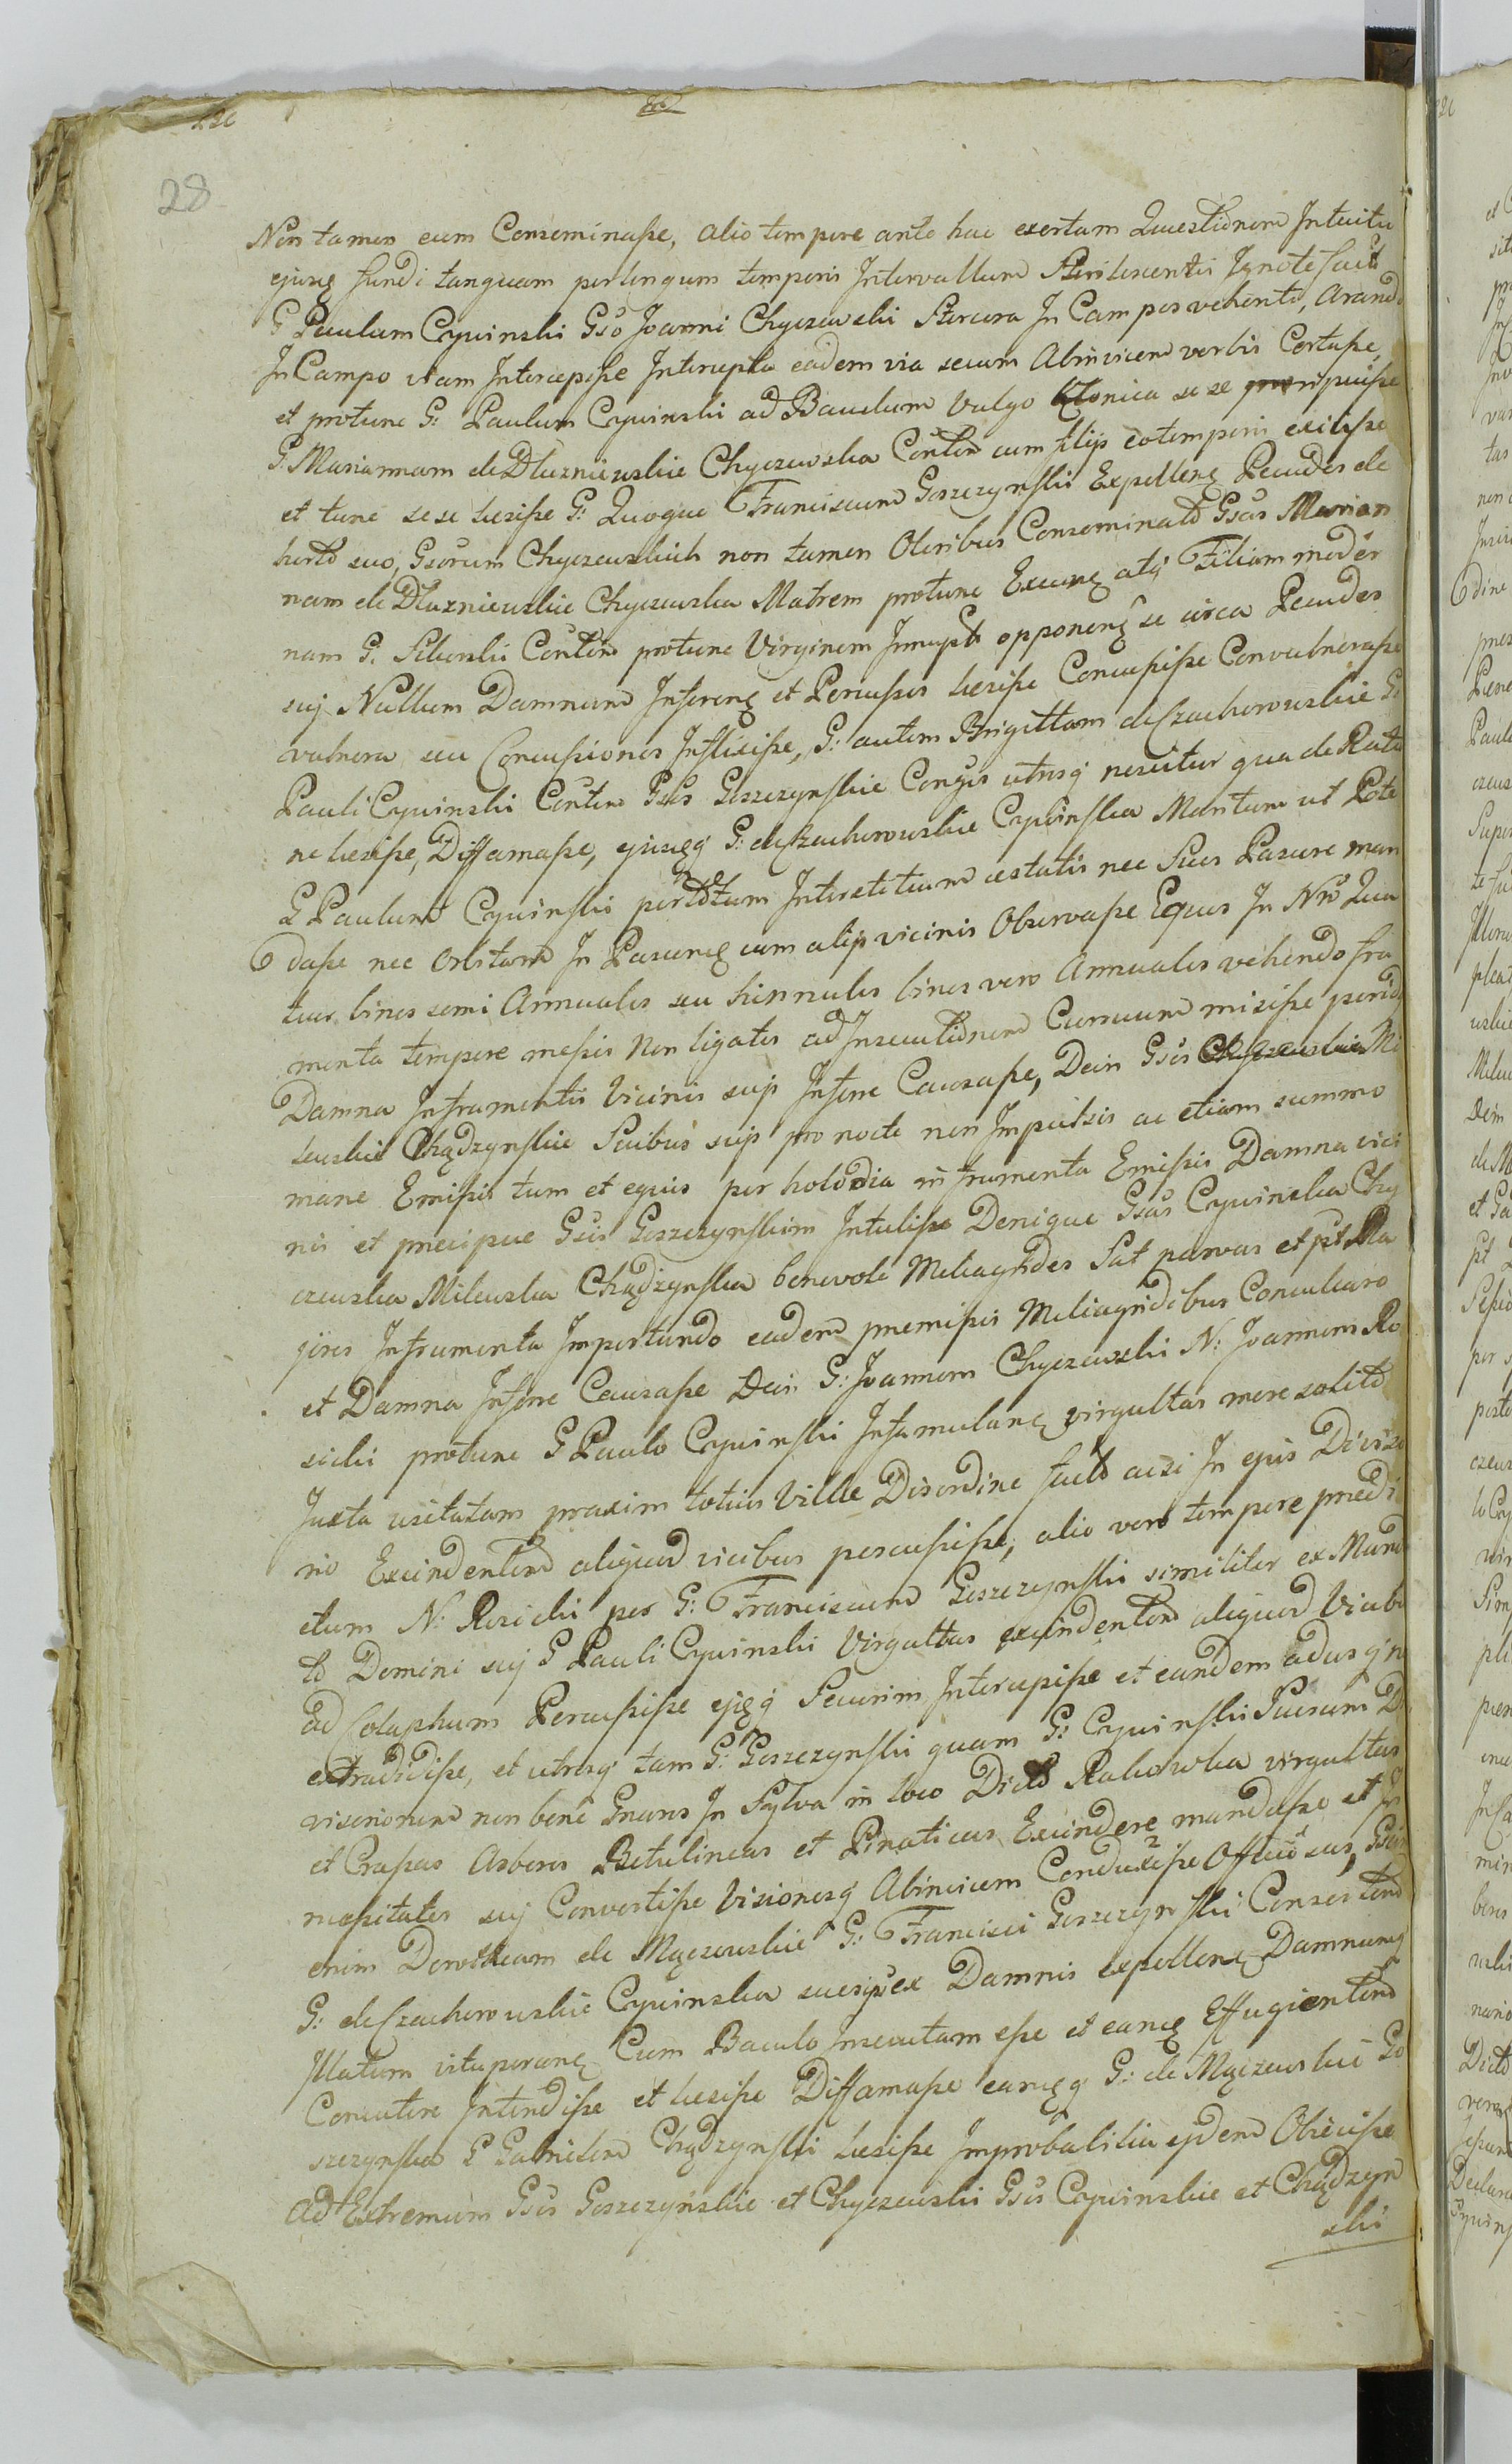 226
28
Non tamen eum Conseminasse, alio tempore ante hac exortam Questionem Intuitu
ejusq fundi tanquam per longum temporis Intervallum Sterilescentis Ignote facto
G Paulum Cywinski Gso Joanni Chyczewski Stercora In Campos vehenti, Arando
In Campo viam Intercepisse Interrupta eadem via secum Abinvicem verbis Certasse,
et protunc G: Paulum Cywinski ad Baculum Vulgo Klonica se se
G. Mariannam de Dluzniewskie Chyczewska Contem cum filijs eotemporis exilisse
et tunc sese lesisse G: Quoque Franciscum Goszczynski Expellenq Pecudes de
horto suo, Gsorum Chyczewskich non tamen Oleribus Conseminato Gsas Marian
nam de Dluzniewskie Chyczewska Matrem protunc atq Filiam moder
nam G. Contem protunc Virginem Innupta opponenq se circa Pecudes
suj Nullum Damnum Inferenq et Percussos lesisse Concussisse Convulnerasse
vulnera seu Concussiones Inflixisse, G: autem Brigittam de Czachorowskie G
Pauli Cywinski Contem Gsos Goszczynskie Conges utrusq nescitur qua de Rati
ne lesisse, Diffamasse, ejusqq G: de Czachorowskie Cywinska Maritum ut Pote
G Paulum Cywinski Interstitium estatis nec Sues Pascere man
dasse nec Orbitam In Pascenq cum alijs vicinis Observasse Equos In Nro Qua
tuor binos semi Annuales seu hinnulos binos vero Annuales vehendo fru
menta tempore messis Non ligatos ad Insecutionem Curruum misisse
Damna Infrumentis Vicinis suis Inferre Causasse, Dein Gsos Mi
lewskie Chądzynskie Suibus suis pro nocte non Impulsis ac etiam summo
mane Emissis tum et equis per holodia in frumenta Emissis Damna vici
nis et precipue Gsis Goszczynskim Intulisse Denique Gsas Cywinska Chy
czewska Milewska Chądzynska benevole Meliagrides Sat parvas et pt Ma
jores Infrumenta Importando eadem premissis Meliagridibus Conculcare
et Damna Inferre Causasse Dein G: Joannem Chyczewski N: Joannem Ro
sicki protunc G Paulo Cywinski Infamulanq virgultas more solito
Juxta usitatam praxim totius Ville Disordine facto acsi In ejus Diviso
rio Excindentem aliquod vicibus percussisse, alio vero tempore predi
ctum N: Rosicki per G: Franciscum Goszczynski similiter ex Mand
to Domini suj G Pauli Cywinski Virgultas excindentem aliquod Vicibu
ad Colaphum Percussisse ejqq Securim Intercepisse et eandem adusq n
extradidisse, et utrosq tam G: Goszczynski quam G: Cywinski Suarum D
visionum non bene Gnaros In Sylva in loco Dicto Rakowka virgultas
et Crassas Arbores Betulineas et Pinaticas Excindere mandasse et In
necessitates suj Convertisse Visionesq Abinvicem Conduxisse Officiosas, Gsas
enim Dorotheam de Mączewskie G: Francisci Goszczynski Consortem
G: de Czachorowskie Cywinska suesq ex Damnis expellenq Damnumq
Illatum vituperanq Cum Baculo Insecutam esse et eanq Effugientem
Concutere Intendisse et lesisse Diffamasse eanqq G: de Mączewskie Go
szczynska G Gabrielem Chądzynski lesisse Improbabilia ejdem Obiecisse
Ad Extremum Gsos Goszczynskie et Chyczewski Gsos Cywinskie et Chądzyn
ski